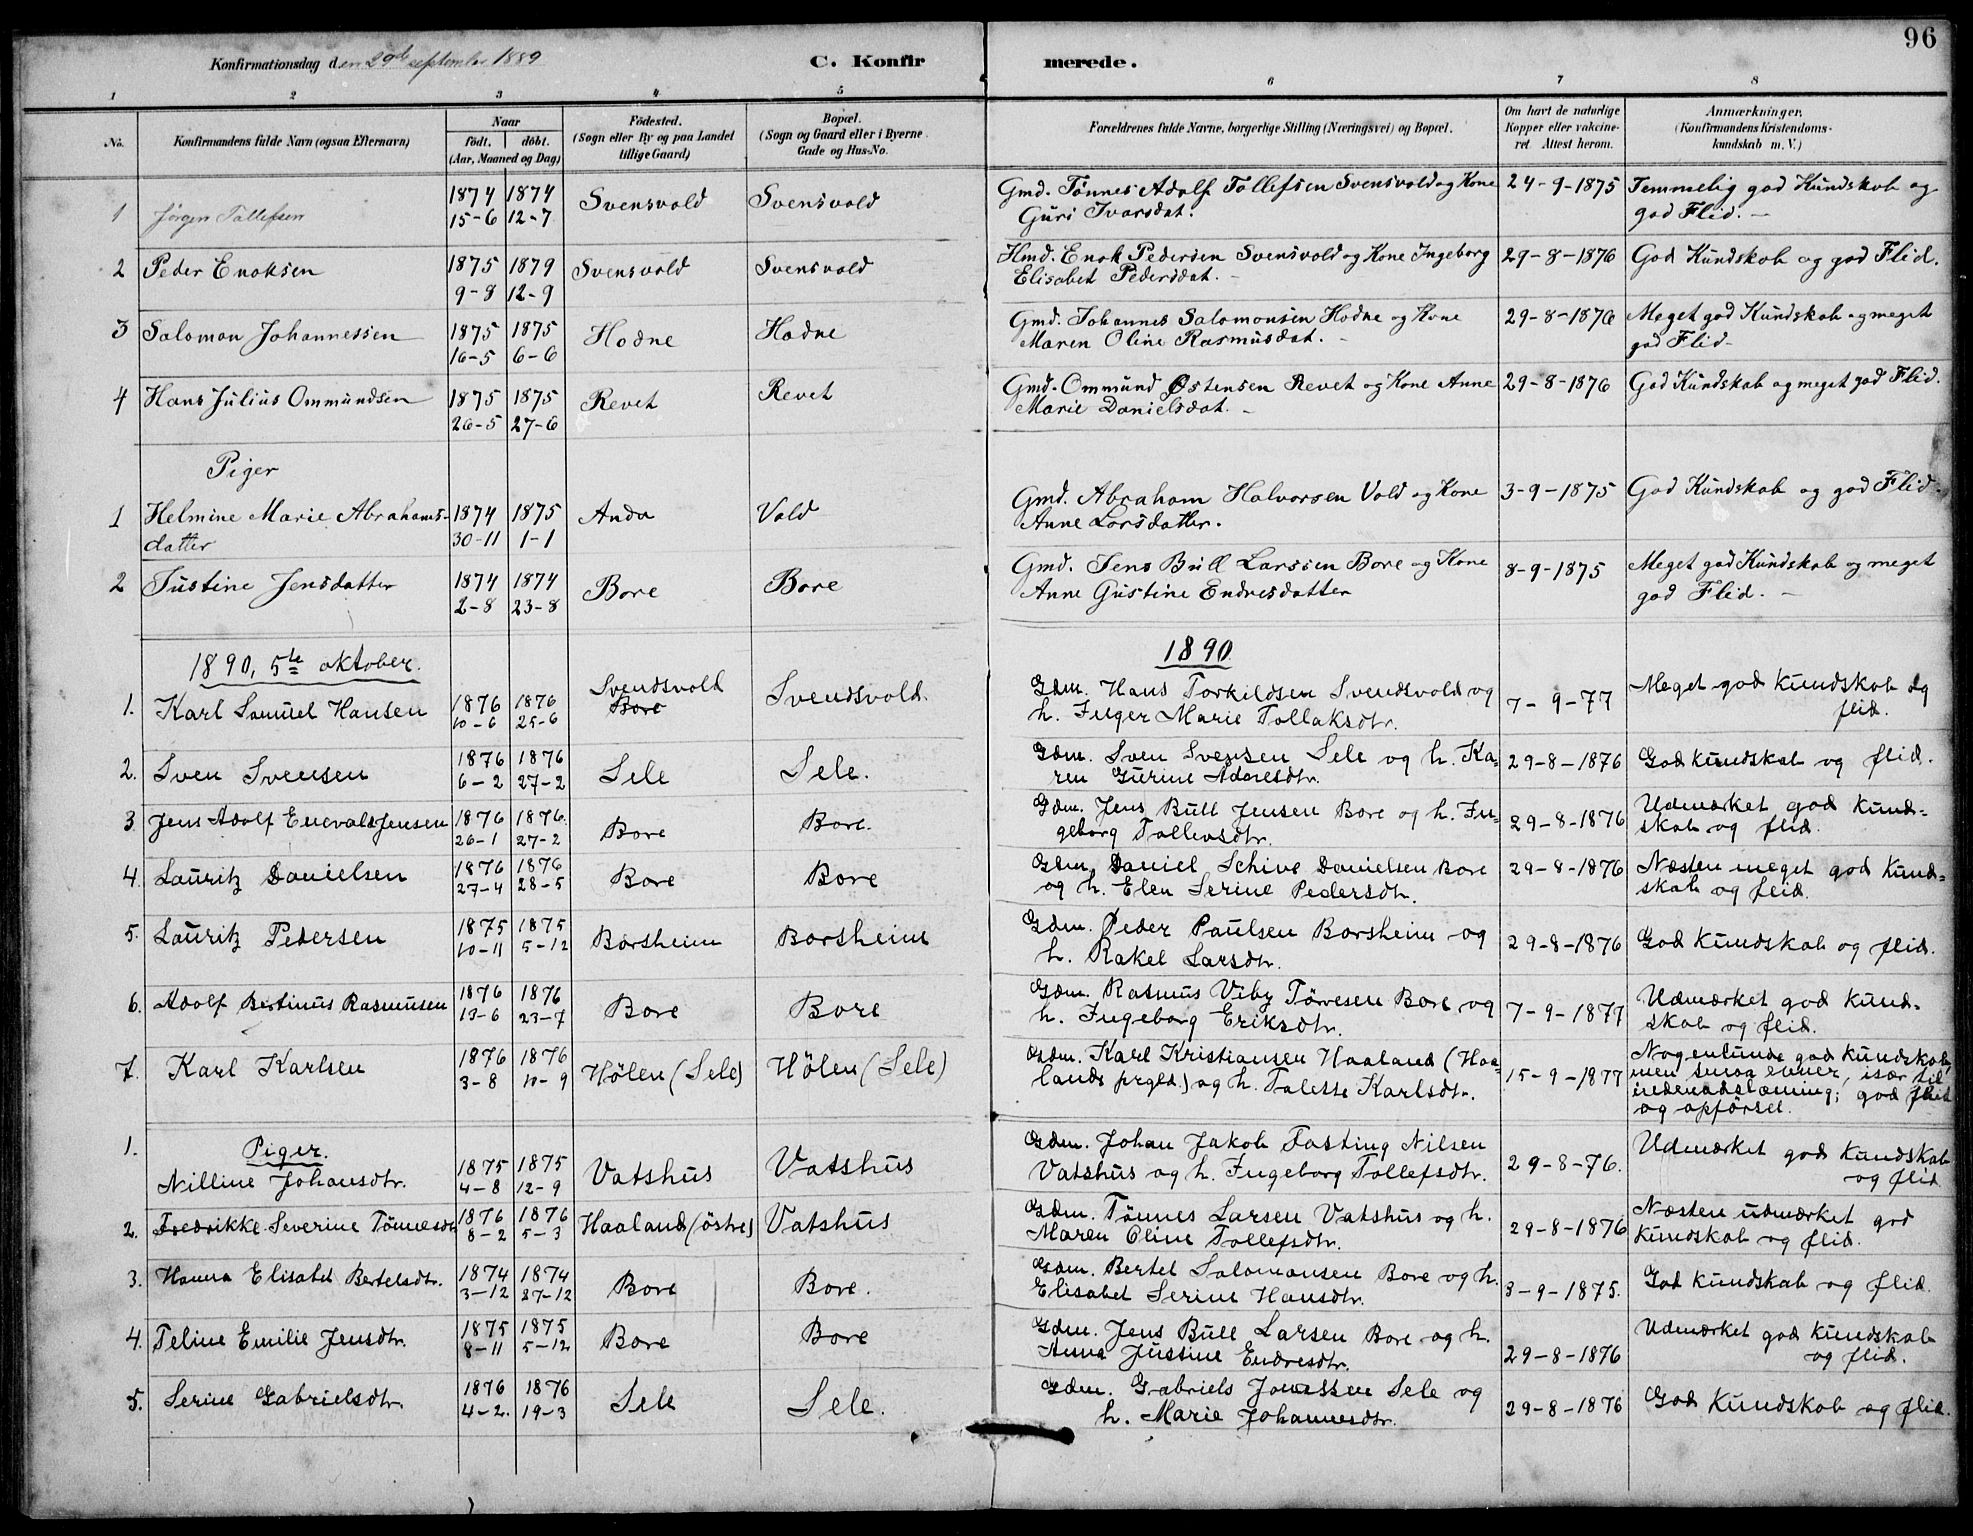 96
Konfirmationsdag den 29de september 1889 C. Konfir merede.
1 2 3 4 5 6 7 8
No. Konfirmandens fulde Navn (ogsaa Efternavn) Naar født. døbt. (Aar, Maaned og Dag) Fødested. (Sogn eller By og paa Landet tillige Gaard) Bopæl. (Sogn og Gaard eller i Byerne Gade og Hus-No. Forældrenes fulde Navne, borgerlige Stilling (Næringsvei) og Bopæl. Om havt de naturlige Kopper eller vakcineret. Attest herom. Anmærkninger. (Konfirmandens Kristendomskundskab m. V.)
1 Jørgen Tollefsen 1874 15-6 1874 12-7 Svensvold Svensvold Gmd. Tønnes Adolf Tollefsen Svensvold og Kone Guri Ivarsdat. 24-9-1875 Temmelig god Kundskab og god Flid. -
2 Peder Enoksen 1875 9-8 1879 12-9 Svensvold Svensvold Hmd. Enok Pedersen Svensvold og Kone Ingeborg Elisabet Pedersdat. - 29-8-1876 God Kundskab og god Flid.
3 Salomon Johannessen 1875 16-5 1875 6-6 Hodne Hodne Gmd. Johannes Salomonsen Hodne og Kone Maren Oline Rasmusdat. - 29-8-1876 Meget god Kundskab og meget god Flid -
4 Hans Julius Ommundsen 1875 26-5 1875 27-6 Revet Revet Gmd. Ommund Østensen Revet og Kone Anne Marie Danielsdat. - 29-8-1876 God Kundskab og meget god Flid.
Piger
1 Helmine Marie Abrahamsdatter 1874 30-11 1875 1-1 Anda Vold Gmd. Abraham Halvorsen Vold og Kone Anne Larsdatter. 3-9-1875 God Kundskab og god Flid.
2 Justine Jensdatter 1874 2-8 1874 23-8 Bore Bore Gmd. Jens Bull Larssen Bore og Kone Anne Gustine Endresdatter 8-9-1875 Meget god Kundskab og meget god Flid. -
1890, 5te oktober. 1890
1. Karl Samuel Hansen 1876 10-6 1876 25-6 Svendsvold Bore Svendsvold. Gdm. Hans Torkildsen Svendsvold og h. Inger Marie Tollaksdtr. 7-9-77 Meget god kundskab og flid.
2. Sven Svensen 1876 6-2 1876 27-2 Sele Sele. Gdm. Sven Svensen Sele og h. Karen Gurine Adnesdtr. 29-8-1876 God kundskab og flid.
3 Jens Adolf Enevald Jensen 1876 26-1 1876. 27-2 Bore Bore. Gdm. Jens Bull Jensen Bore og h. Ingeborg Tollevsdtr. 29-8-1876 Udmærket god kundskab og flid.
4. Lauritz Danielsen 1876 27-4 1876 28-5 Bore Bore Gdm. Daniel Schive Danielsen Bore og h. Elen Serine Pedersdtr. 29-8-1876 Næsten meget god kundskab og flid.
5. Lauritz Pedersen 1875 10-11 1875 5-12 Borsheim Borsheim Gdm. Peder Paulsen Borsheim og h. Rakel Larsdtr. 29-8-1876 God kundskab og flid.
6. Adolf Bertinus Rasmusen 1876 13-6 1876 23-7 Bore Bore Gdm. Rasmus Viby Tørresen Bore og h. Ingeborg Eriksdtr. 7-9-1877 Udmærket god kundskab og flid.
7. Karl Karlsen 1876 3-8 1876 10-9 Hølen (Sele) Hølen (Sele) Gdm. Karl Kristiansen Haaland (Haalands prgld.) og h. Talette Karlsdtr. 15-9-1877 Nogenlunde god kundskab, men smaa evner, især til indenadslæsning; god flid og opførsel.
Piger.
1. Nilline Johansdtr. 1875 4-8 1875 12-9 Vatshus Vatshus Gdm. Johan Jakob Fasting Nilsen Vatshus og h. Ingeborg Tollefsdtr. 29-8-76. Udmærket god kundskab og flid
2. Fredrikke Severine Tønnesdtr 1876 8-2 1876 5-3 Haaland (østre) Vatshus Gdm. Tønnes Larsen Vatshus og h. Maren Oline Tollefsdtr. 29-8-1876 Næsten udmærket god kundskab og flid.
3. Hanna Elisabet Bertelsdtr. 1874 3-12 1874 27-12 Bore Bore. Gdm. Bertel Salomonsen Bore og h. Elisabet Serine Hansdtr. 3-9-1875. God kundskab og flid.
4. Teline Emilie Jensdtr. 1875 8-11 1875 5-12 Bore Bore Gdm. Jens Bull Larsen Bore og h. Anna Justine Endresdtr. 29-8-1876 Udmærket god kundskab og flid.
5. Serine Gabrielsdtr. 1876 4-2. 1876 19-3 Sele Sele. Gdm. Gabriels Jonassen Sele og h. Marie Johannesdtr. 29-8-1876 God kundskab og flid.